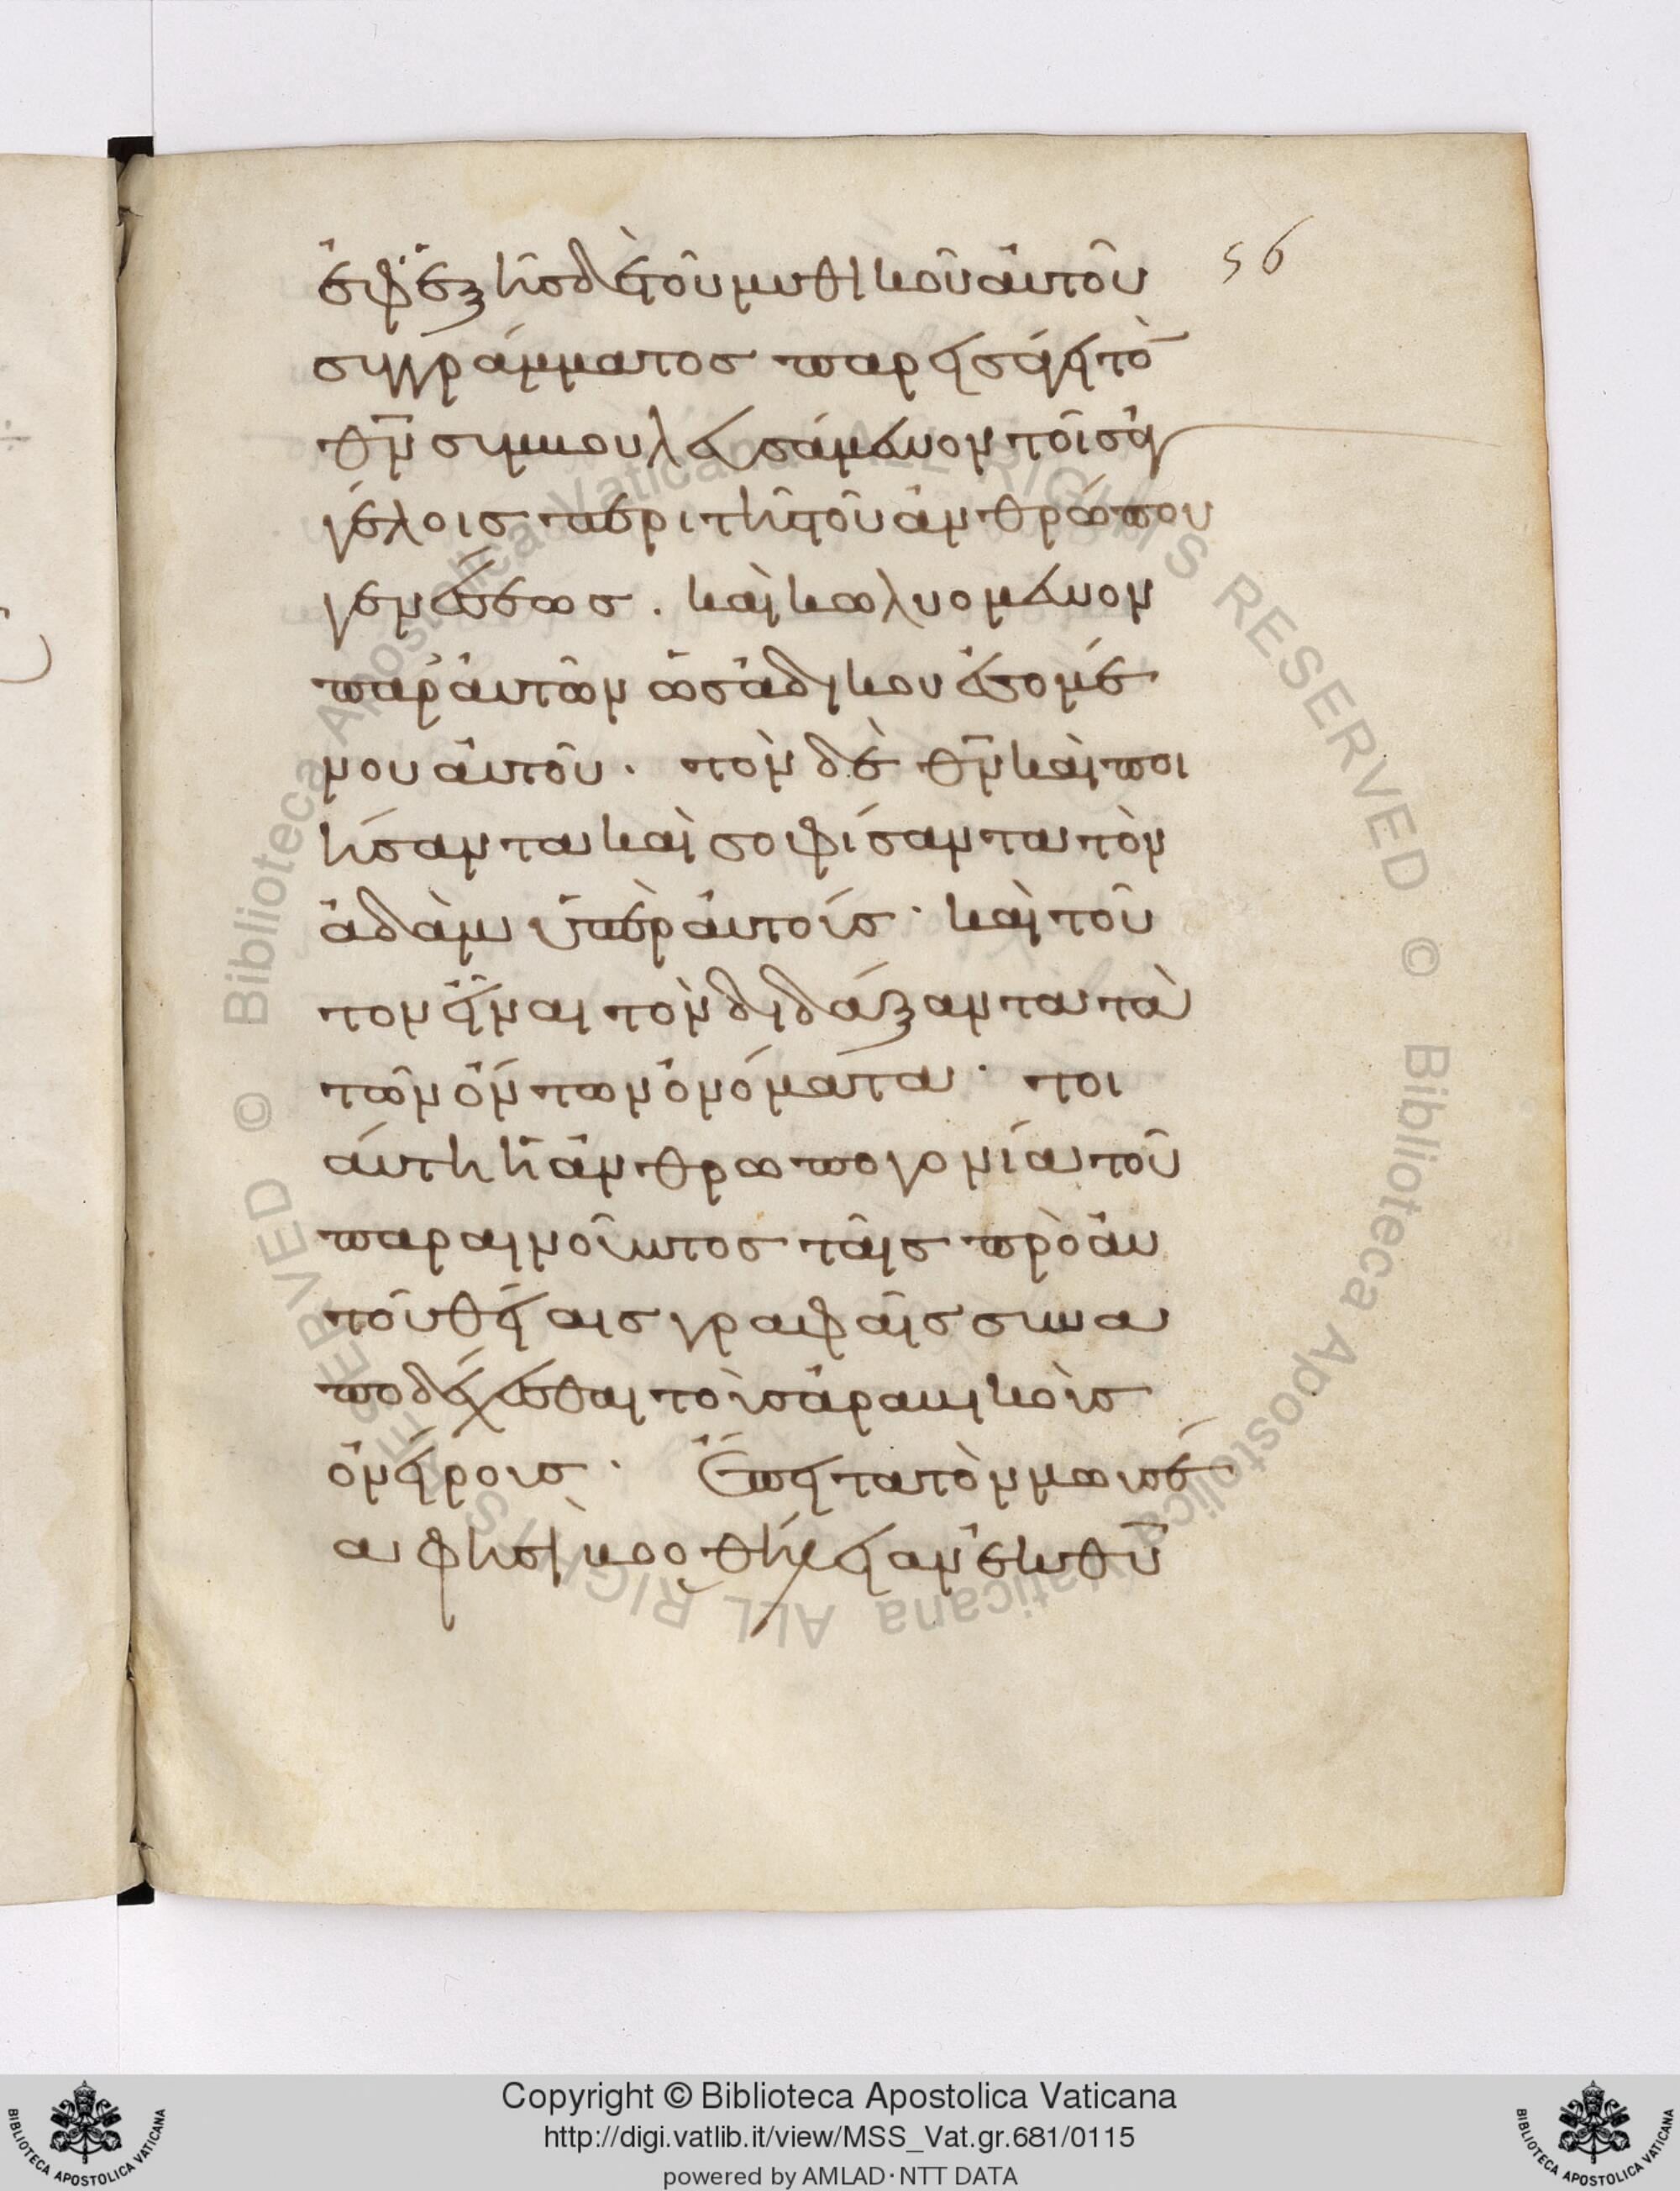 56
ἐφ' ἑξῆς δὲ τοῦ μυθικοῦ αὐτοῦ
συγγράμματος παρεισάγει τὸ
θν̅ συμβουλευσάμενον τοῖς ἀγ
γέλοις περὶ τῆς τοῦ ἀνθρώπου
γενέσεως. καὶ κωλυόμενον
παρ' αὐτῶν ὡς ἀδίκου ἐσομέ
νου αὐτοῦ· τὸν δὲ θν̅ καὶ ποι
ήσαντα καὶ σοφίσαντα τὸν
ἀδὰμ ὑπὲρ αὐτούς· καὶ τοῦ
τον εἶναι τὸν διδάξαντα τὰ
τῶν ὄντων ὀνόματα· τοι
αύτη ἡ ἀνθρωπογονία τοῦ
παραινοῦντος ταῖς πρὸ αὐ
τοῦ θείαις γραφαῖς συνα
ποδέχεσθαι τοὺς ἀραβικοὺς
ὀνείρους· Ἔπειτα τὸν μωυσέ
α φησὶ βοοθήρειαν ἐκ θυ̅
Copyright © Biblioteca Apostolica Vaticana
http://digi.vatlib.it/view/MSS_Vat.gr.681/0115
powered by AMLAD·NTT DATA
BIBLIOTECA APOSTOLICA VATICANA
BIBLIOTECA APOSTOLICA VATICANA
© Biblioteca Apostolica Vaticana ALL RIGHTS RESERVED
© Biblioteca Apostolica Vaticana ALL RIGHTS RESERVED